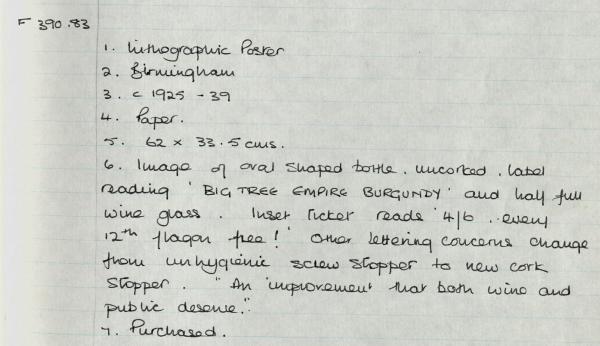 F 390.83
1. Lithographic Poster
2. Birmingham
3. c 1925 - 39
4. Paper.
5. 62 x 33.5 cms.
6. Image of oval shaped bottle, uncorked, label
reading 'BIG TREE EMPIRE BURGUNDY' and half full
wine glass. Inset Ticket reads '4/6 .. every
12th flagon free!' Other lettering concerns change
from unhygienic screw stopper to new cork
stopper. "An improvement that both wine and
public deserve."
7. Purchased.